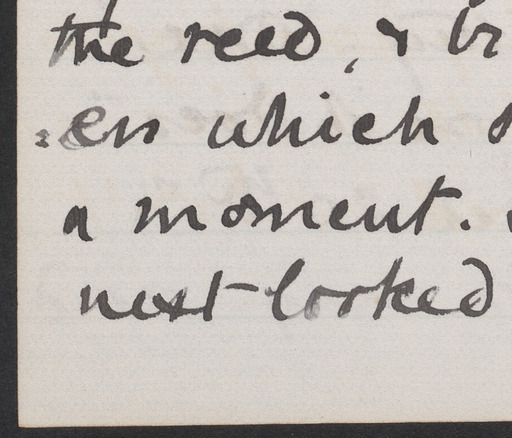 the reed, & br
=en which
a moment.
next looked